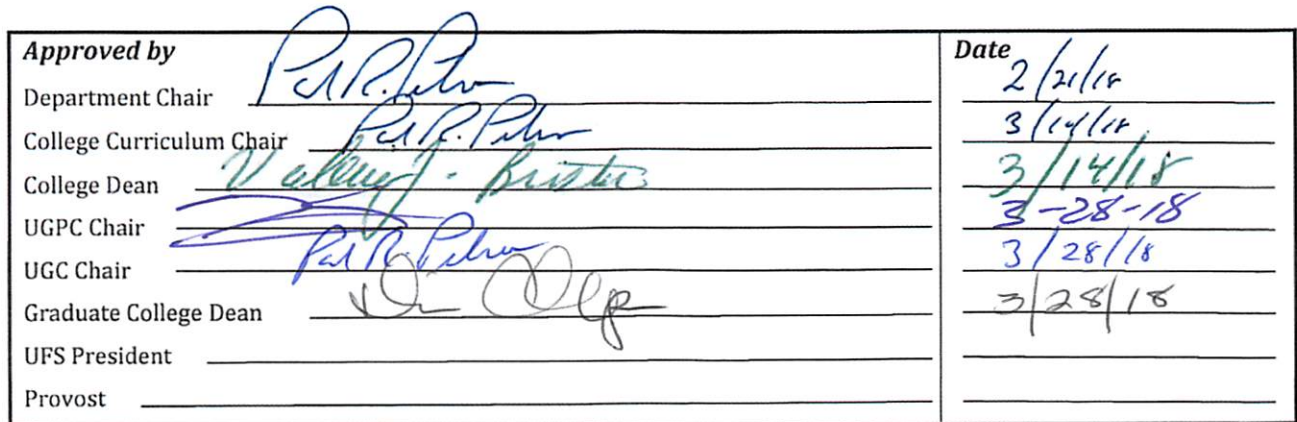 Approved by Date
Department Chair 2/21/18
College Curriculum Chair 3/14/18
College Dean Valery J. Bristor 3/14/18
UGPC Chair 3-28-18
UGC Chair 3/28/18
Graduate College Dean 3/28/18
UFS President
Provost